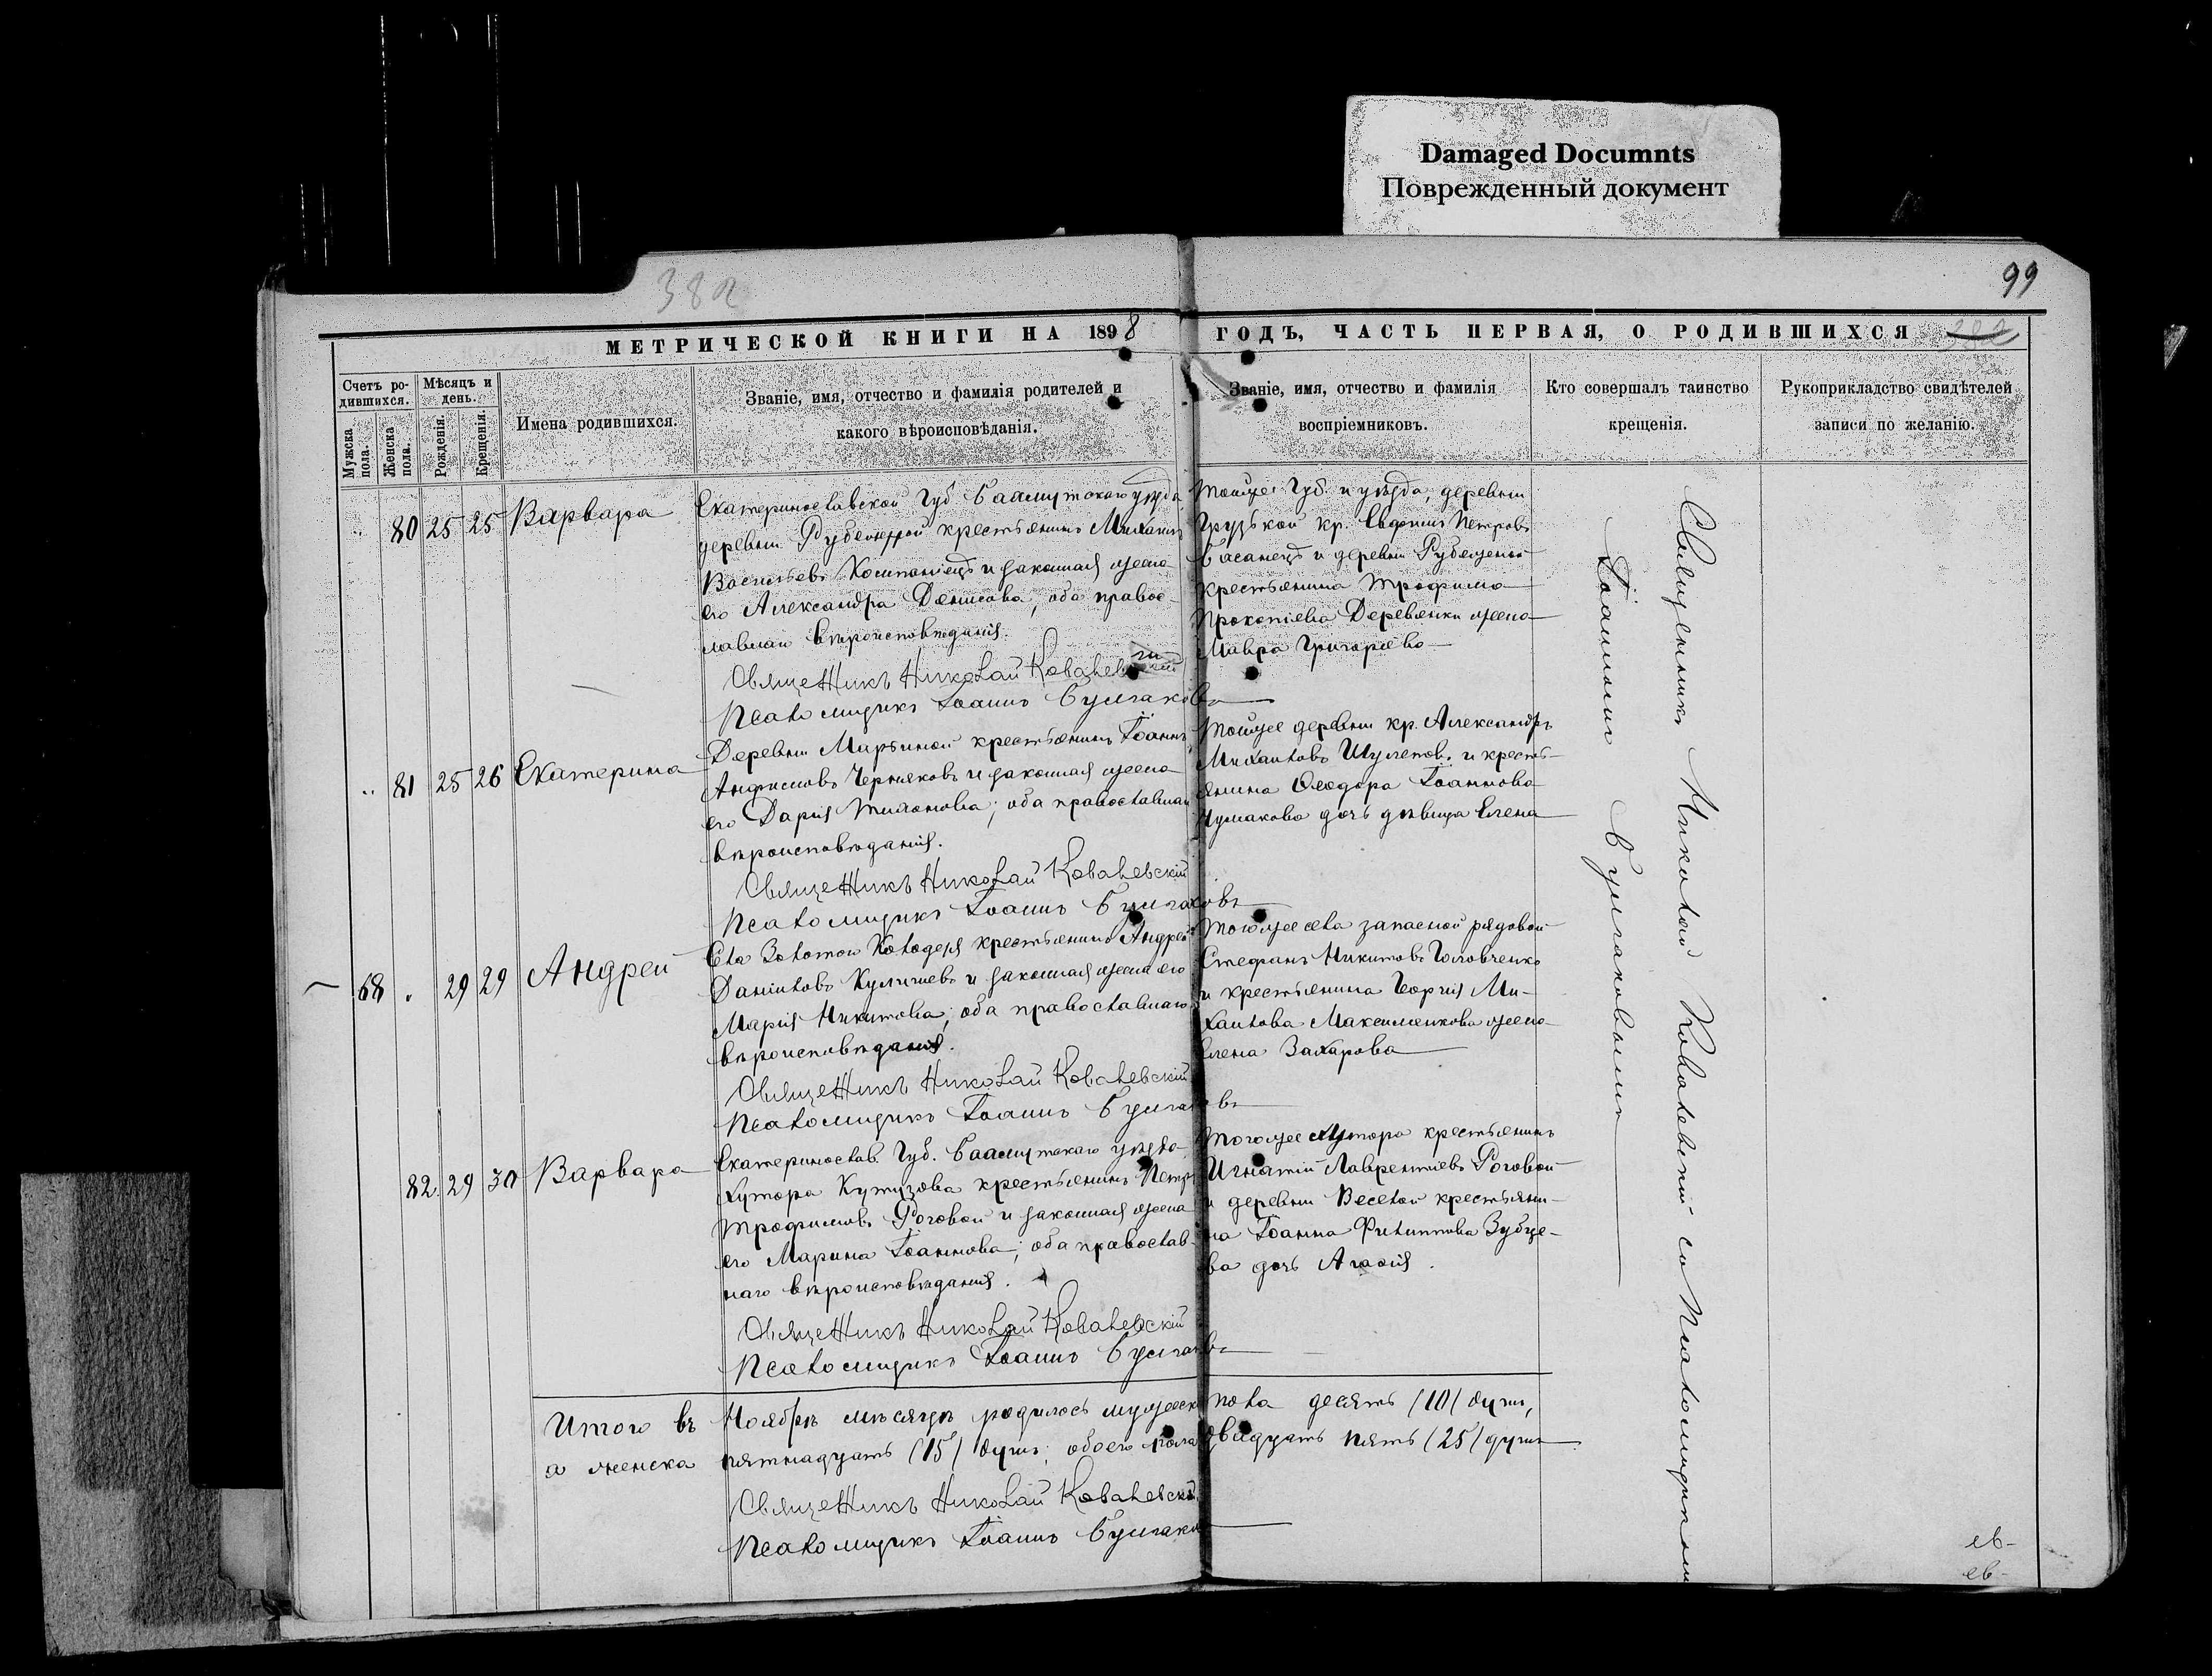 Damaged Documnts
Поврежденный документ
382
99
МЕТРИЧЕСКОЙ КНИГИ НА 1898
ГОДЪ, ЧАСТЬ ПЕРВАЯ, О РОДИВШИХСЯ
Счетъ ро-
дившихся.
Мѣсяцъ и
день.
Мужска
пола.
Женска
пола.
Рожденія.
Крещенія.
Имена родившихся.
Званіе, имя, отчество и фамилія родителей и
какого вѣроисповѣданія.
Званіе, имя, отчество и фамилія
воспріемниковъ.
Кто совершалъ таинство
крещенія.
Рукоприкладство свидѣтелей
записи по желанію.
80 25 25 Варвара
Екатеринославской Губ. Бахмутскаго уѣзда
деревни крестьянинъ Михаилъ
Васильевъ Компаніецъ и законная жена
его Александра Денисова, оба правос-
лавнаго вѣроисповѣданія.
Священникъ Николай Ковалевскій
Псаломщикъ Іоаннъ Булгаковъ
Тойже Губ. и уѣзда, деревни
Грузской кр. Евфимъ Петровъ
и деревни
крестьянина Трофима
Прокопіева Деревянки жена
Мавра Григоріева
81 25 26 Екатерина
Деревни Марьиной крестьянинъ Іоаннъ
Анфимовъ Черняковъ и законная жена
его Дарія Тихонова; оба православнаго
вѣроисповѣданія.
Священникъ Николай Ковалевскій
Псаломщикъ Іоаннъ Булгаковъ
Тойже деревни кр. Александръ
Михаиловъ Шулепов. и кресть-
янина Ѳеодора Іоаннова
Чумакова дочь дѣвица Елена
68 29 29 Андрей
Села Золотой Колодезя крестьянинъ Андрей
Даніиловъ и законная жена его
Марія Никитова; оба православнаго
вѣроисповѣданія.
Священникъ Николай Ковалевскій
Псаломщикъ Іоаннъ Булгаковъ
Тогоже села запасной рядовой
Стефанъ Никитовъ Головченко
и крестьянина Георгія Ми-
хаилова Максименкова жена
Елена Захарова
82 29 30 Варвара
Екатеринослав. Губ. Бахмутскаго уѣзда
хутора Кутузова крестьянинъ Петръ
Трофимовъ Роговой и законная жена
его Марина Іоаннова; оба православ-
наго вѣроисповѣданія.
Священникъ Николай Ковалевскій
Псаломщикъ Іоаннъ Булгаковъ
Тогоже хутора крестьянинъ
Игнатій Лаврентіевъ Роговой
и деревни Веселой крестьяни-
на Іоанна Филиппова Зубце-
ва дочь Агафія.
Священникъ Николай Ковалевскій со Псаломщикомъ
Іоанномъ Булгаковымъ
Итого въ Ноябрѣ мѣсяцѣ родилось мужеска пола десять (10) душъ,
а женска пятнадцать (15) душъ; обоего пола двадцать пять (25) душъ
Священникъ Николай Ковалевскій
Псаломщикъ Іоаннъ Булгаковъ